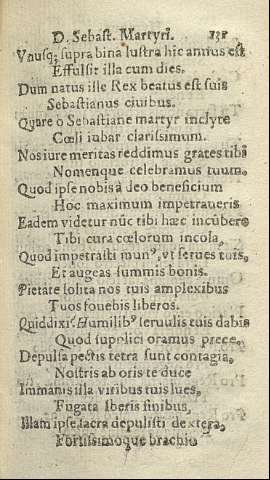 D. Sebast. Martyri. 131
Vnusq; supra bina lustra hic annus est
Effulsit illa cum dies.
Dum natus ille Rex beatus est suis
Sebastianus ciuibus.
Quare o Sebastiane martyr inclyte
Cœli iubar clarissimum.
Nos iure meritas reddimus grates tibi
Nomenque celebramus tuum.
Quod ipse nobis à deo beneficium
Hoc maximum impetraueris
Eadem videtur nũc tibi hæc incũbere
Tibi cura cœlorum incola,
Quod impetrasti munꝰ, vt serues tuis,
Et augeas summis bonis.
Pietate solita nos tuis amplexibus
Tuos fouebis liberos.
Quid dixi? Humilibꝰ seruulis tuis dabis
Quod supplici oramus prece.
Depulsa pectis tetra sunt contagia,
Nostris ab oris te duce
Immanis illa viribus tuis lues,
Fugata Iberis finibus,
Illam ipse sacra depulisti dextera,
Fortissimoque brachio